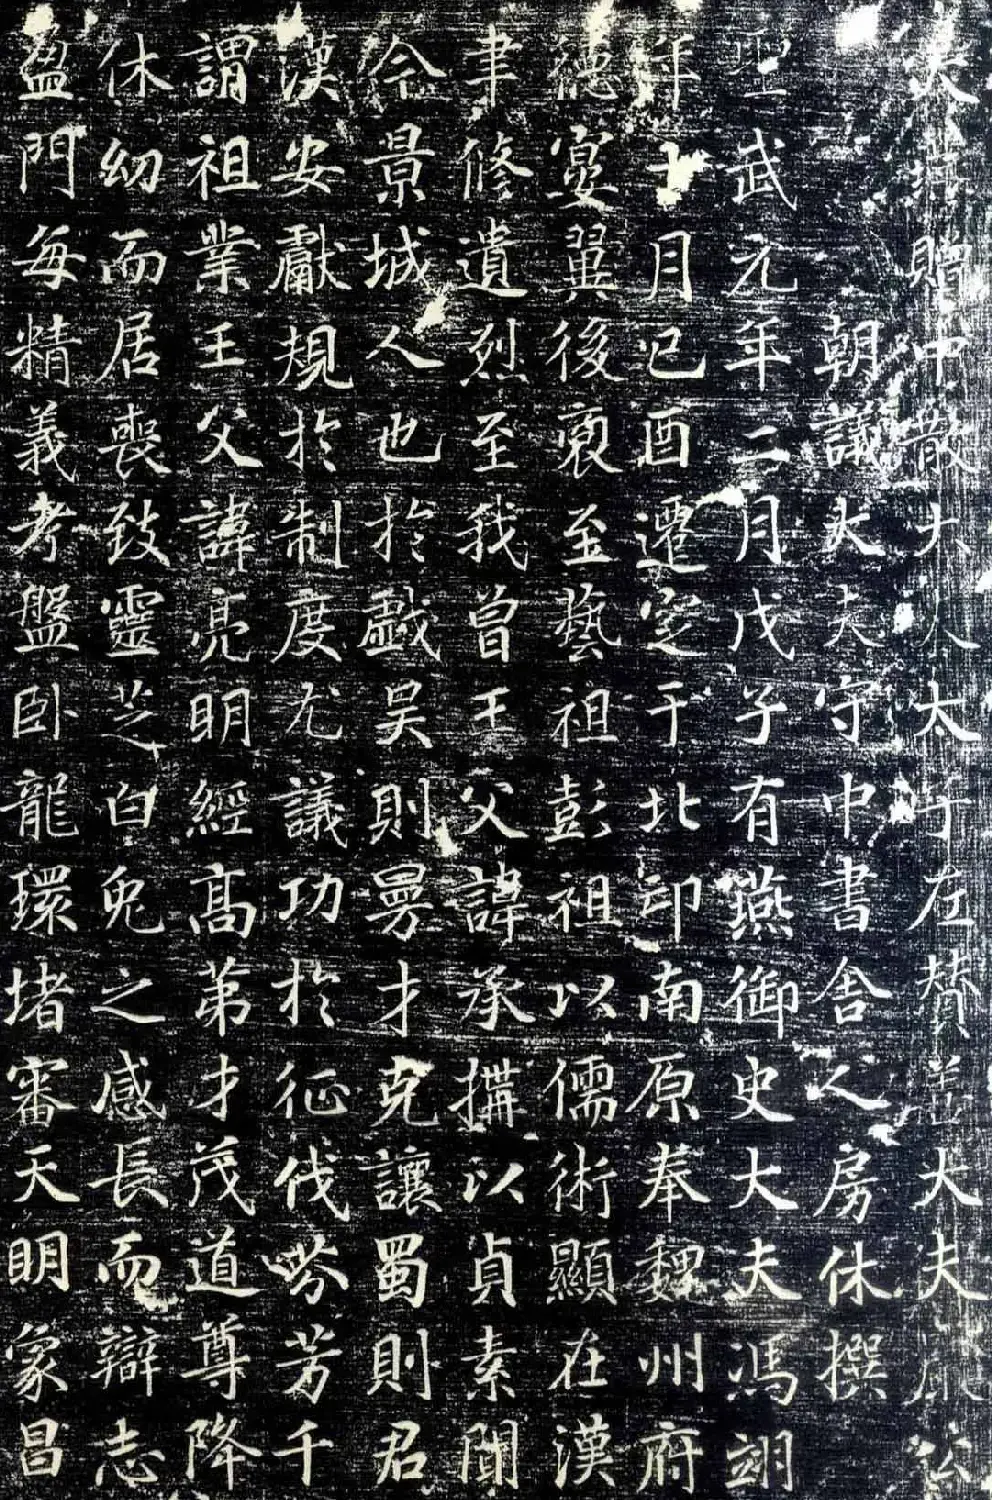 大燕贈中散大夫太子左贊善大夫嚴公
朝議大夫守中書舍人房休撰
聖武元年二月戊子有燕御史大夫馮翊
年十月己酉遷窆于北邙南原奉魏州府
德宴翼後裔至藝祖彭祖以儒術顯在漢
聿修遺烈至我曾王父諱承搆以貞素聞
令景城人也於戲吴則曼才克讓蜀則君
漢安獻規於制度尤議功於征伐芳千
謂祖業王父諱亮明經高第才茂道尊降
休幼而居喪致靈芝白兔之感長而辯志
盈門每精義考盤卧龍環堵審天明象昌